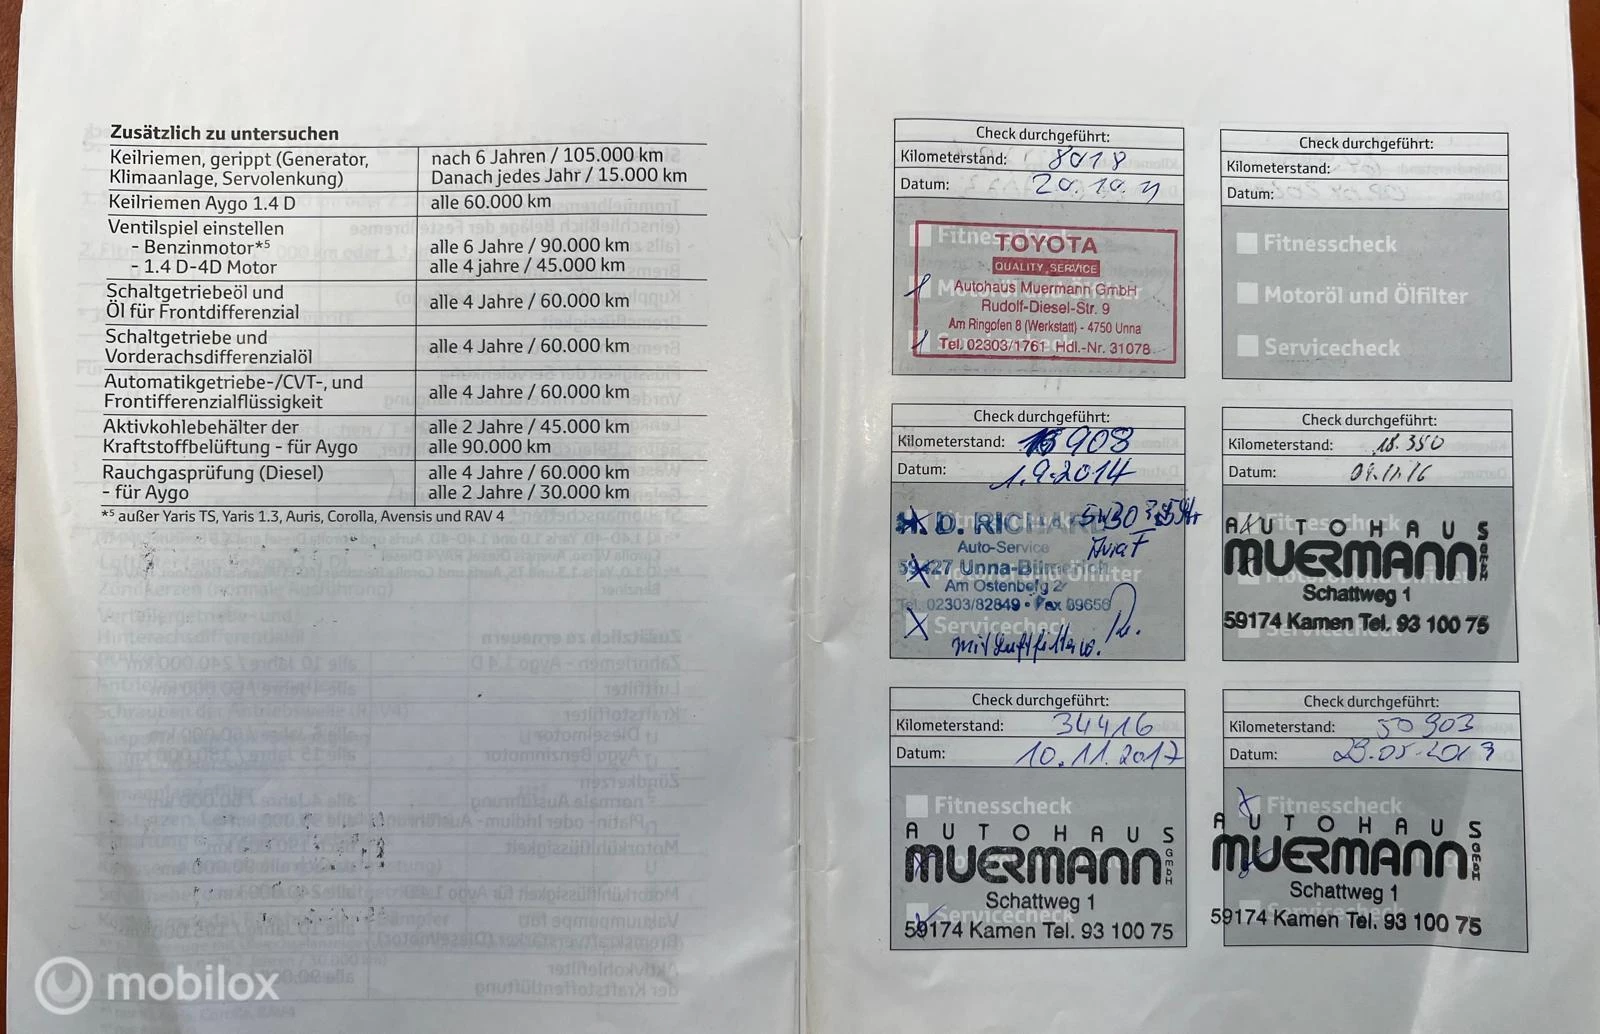 Zusätzlich zu untersuchen
Keilriemen, gerippt (Generator, Klimaanlage, Servolenkung) nach 6 Jahren / 105.000 km Danach jedes Jahr / 15.000 km
Keilriemen Aygo 1.4 D alle 60.000 km
Ventilspiel einstellen
- Benzinmotor*5 alle 6 Jahre / 90.000 km
- 1.4 D-4D Motor alle 4 jahre / 45.000 km
Schaltgetriebeöl und Öl für Frontdifferenzial alle 4 Jahre / 60.000 km
Schaltgetriebe und Vorderachsdifferenzialöl alle 4 Jahre / 60.000 km
Automatikgetriebe-/CVT-, und Frontifferenzialflüssigkeit alle 4 Jahre / 60.000 km
Aktivkohlebehälter der alle 2 Jahre / 45.000 km
Kraftstoffbelüftung - für Aygo alle 90.000 km
Rauchgasprüfung (Diesel) alle 4 Jahre / 60.000 km
- für Aygo alle 2 Jahre / 30.000 km
*5 außer Yaris TS, Yaris 1.3, Auris, Corolla, Avensis und RAV 4
Check durchgeführt:
Kilometerstand: 8018
Datum: 20.10.11
Fitnesscheck
Motoröl und Ölfilter
Servicecheck
TOYOTA
QUALITY SERVICE
Autohaus Muermann GmbH
Rudolf-Diesel-Str. 9
Am Ringofen 8 (Werkstatt) - 4750 Unna
Tel. 02303/1761 Hdl.-Nr. 31078
Check durchgeführt:
Kilometerstand:
Datum:
Fitnesscheck
Motoröl und Ölfilter
Servicecheck
Check durchgeführt:
Kilometerstand: 908
Datum: 1.9.2014
D. RICHARD
5W30
Auto-Service
59427 Unna-Billmerich
Am Ostenberg 2
Tel. 02303/82849 • Fax 89656
Servicecheck
mit Luftfilter
Check durchgeführt:
Kilometerstand: 18.350
Datum: 04.11.16
AUTOHAUS
MUERMANN GmbH
Schattweg 1
59174 Kamen Tel. 93 100 75
Check durchgeführt:
Kilometerstand: 34416
Datum: 10.11.2017
Fitnesscheck
AUTOHAUS
MUERMANN GmbH
Schattweg 1
Servicecheck
59174 Kamen Tel. 93 100 75
Check durchgeführt:
Kilometerstand: 50903
Datum: 29.05.2019
Fitnesscheck
AUTOHAUS
MUERMANN GmbH
Schattweg 1
59174 Kamen Tel. 93 100 75
mobilox